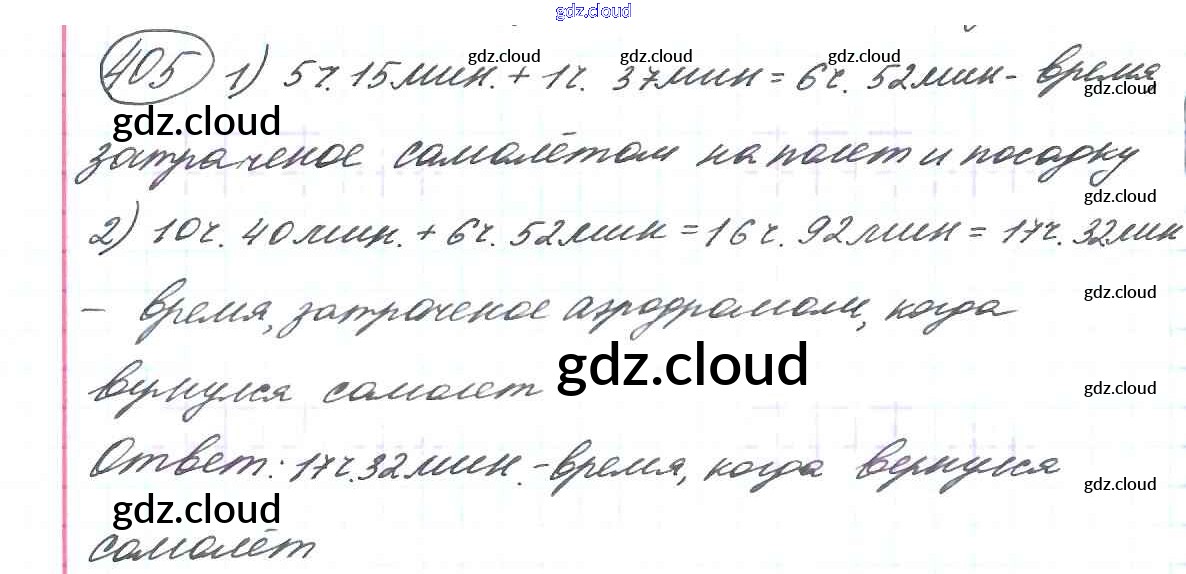 gdz.cloud
405 1) 5ч. 15мин. + 1ч. 37мин = 6ч. 52мин - время
gdz.cloud gdz.cloud gdz.cloud
gdz.cloud
gdz.cloud
затраченое самолётом на полет и посадку
gdz.cloud
2) 10ч. 40мин. + 6ч. 52мин = 16ч. 92мин = 17ч. 32мин
gdz.cloud
- время, затраченое аэродромом, когда
gdz.cloud
вернулся самолет
gdz.cloud
Ответ: 17ч.32мин. - время, когда вернулся
gdz.cloud
gdz.cloud
самолёт